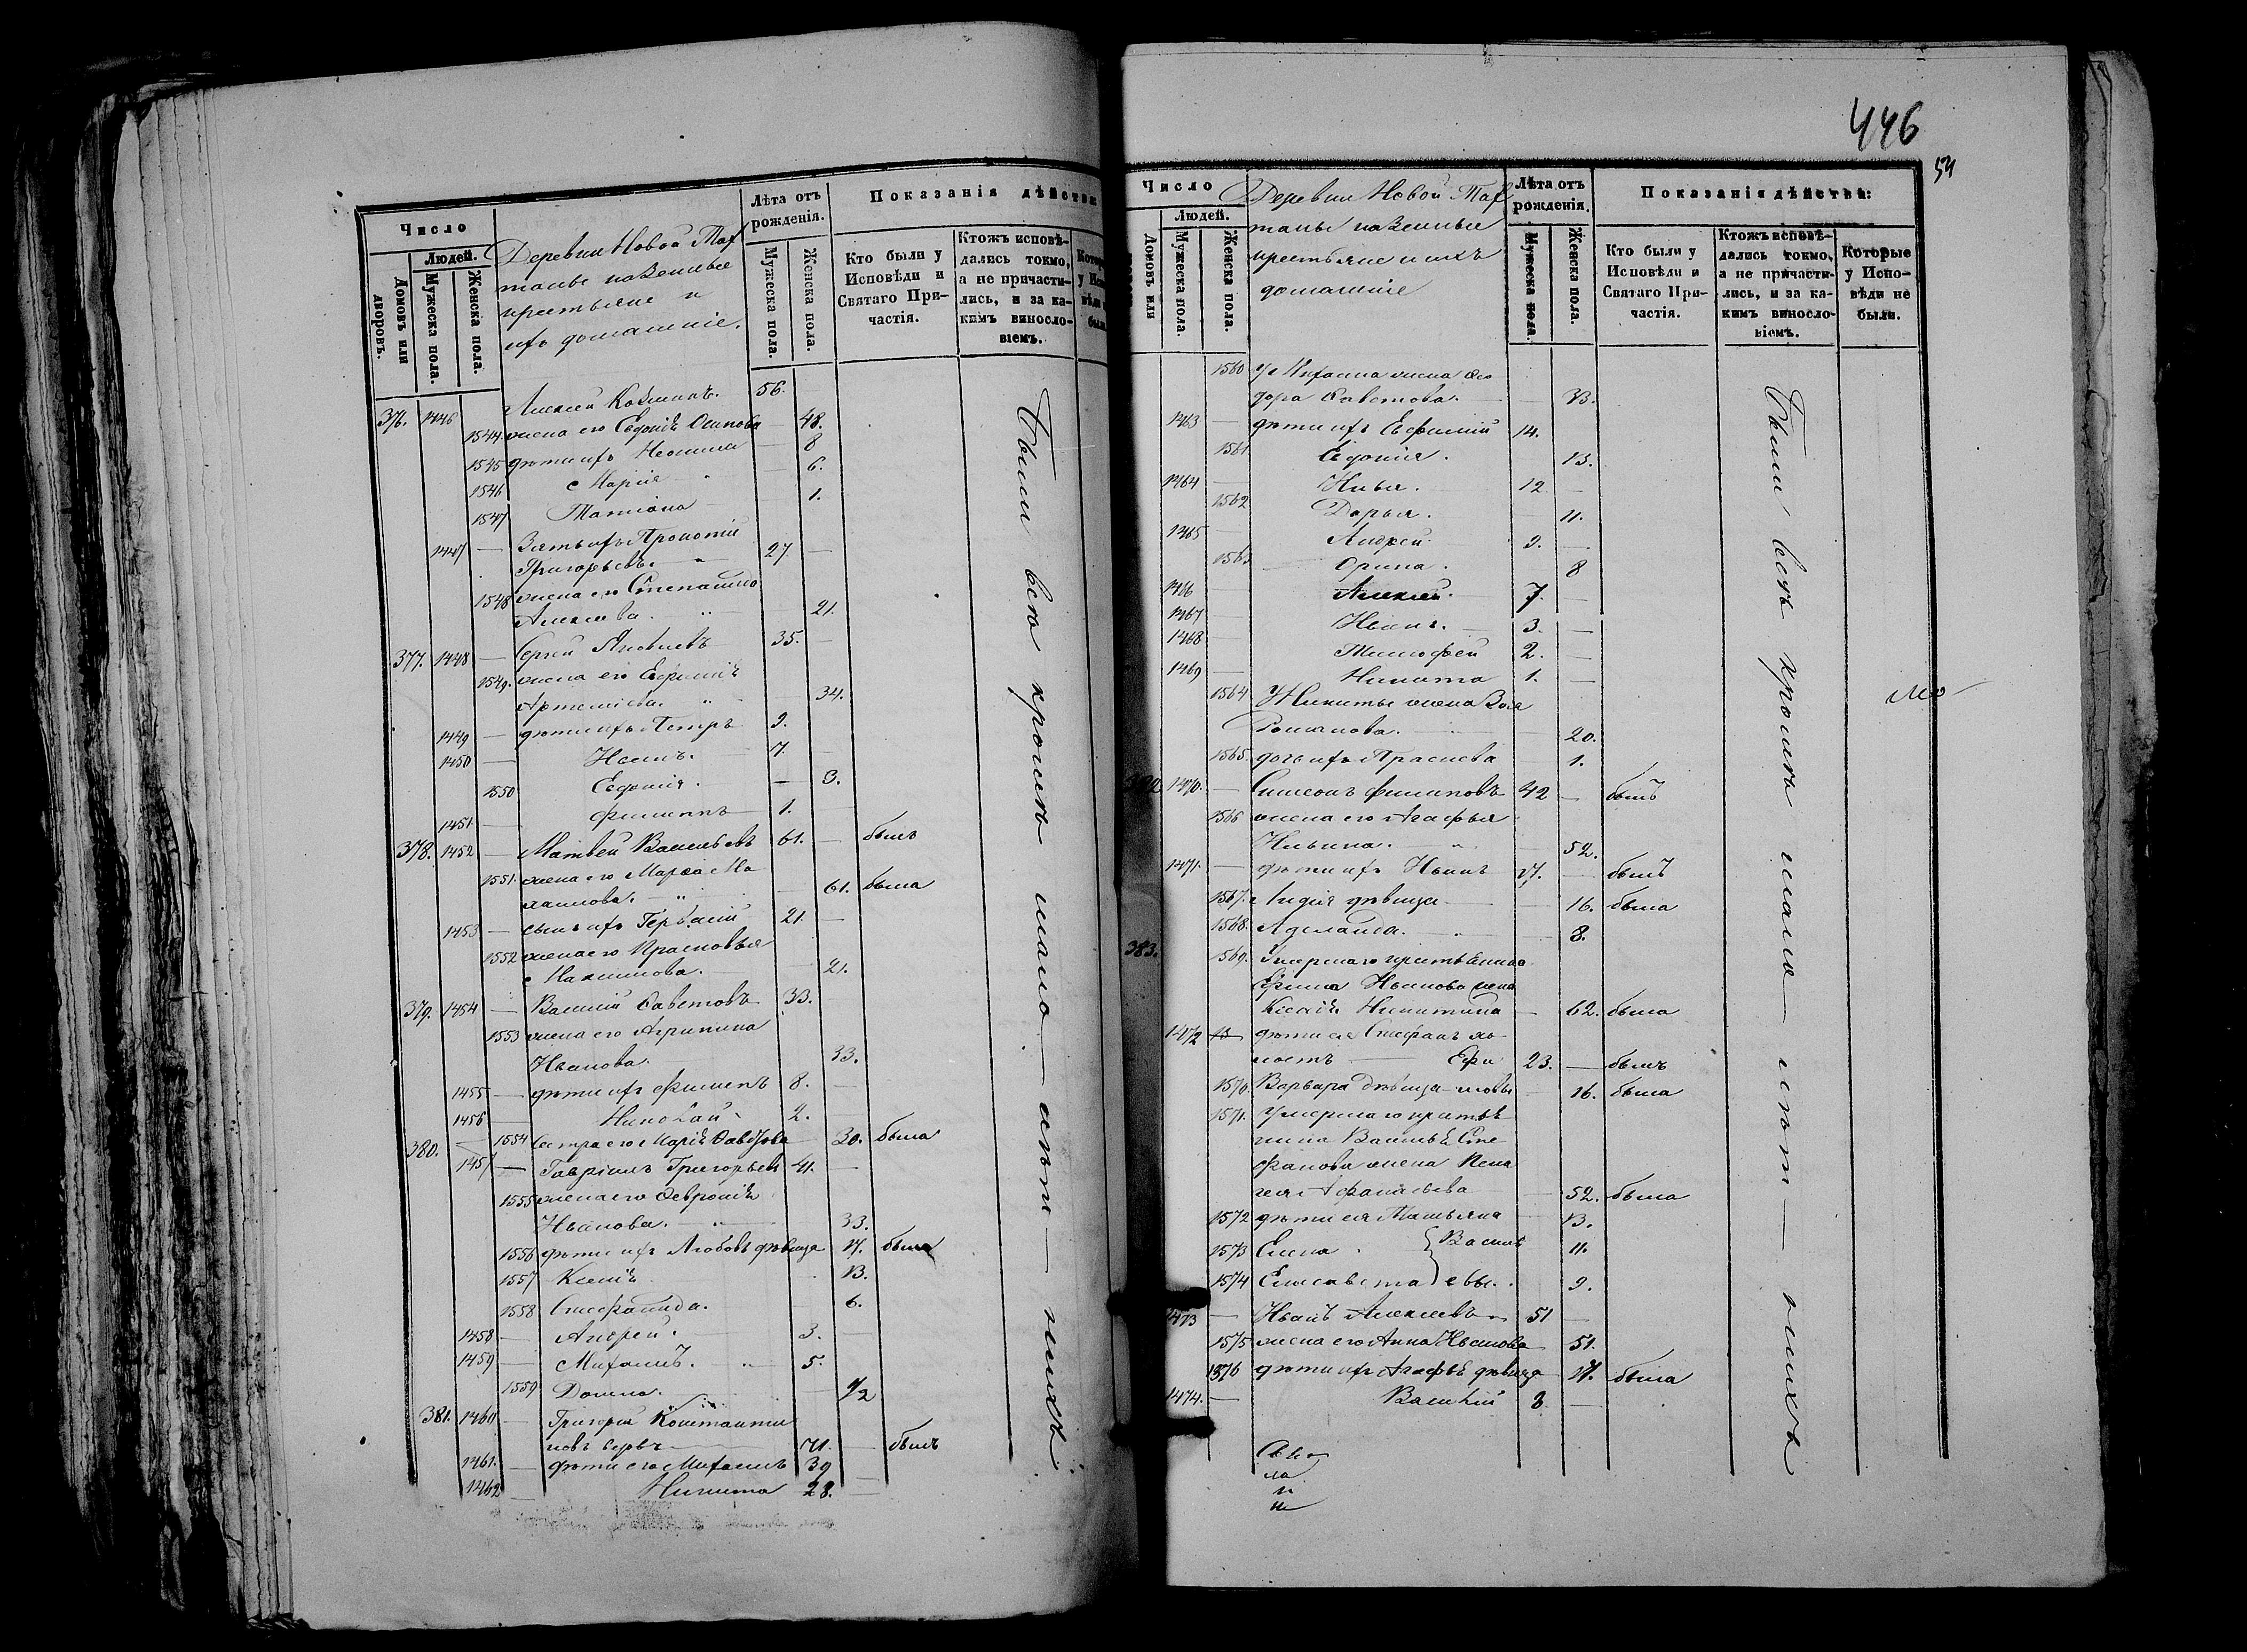 Число
Людей.
Домовъ или дворовъ.
Мужеска пола.
Женска пола.
Деревни Новой Таф
таны казенные
крестьяне и
ихъ домашніе.
Лѣта отъ рожденія.
Мужеска пола.
Женска пола.
Показанія дѣйства
Кто были у Исповѣди и Святаго Причастія.
Ктожъ исповѣдались токмо, а не причастились, и за какимъ винословіемъ.
376. 1446 Алексей Козминъ. 56.
1544. жена его Евдокія Осипова 48.
1545 дѣти ихъ Неонила 8
1546 Марія 6.
1547 Татіана 1.
1447 Зять ихъ Прокопій
Григорьевъ. 27
1548 жена его Степанида
Алексеева. 21.
377. 1448 Сергей Яковлевъ 35.
1549. жена его Евфимія
Артемьева. 34.
1449 дѣти ихъ Петръ 9.
1450 Иванъ. 7
1550 Евдокія. 3.
1451 Филиппъ 1.
378. 1452 Матвей Васильевъ 61. былъ
1551. жена его Марѳа Ма
61. была
1453 сынъ ихъ Герасій 21.
1552 жена его Прасковья
Максимова. 21.
379. 1454 Василій Савѣтовъ 33.
1553 жена его Агрипина
Иванова. 33.
1455 дѣти ихъ Филипъ 8.
1456 Николай 2.
1554 Сестра его Марія 30. была
380. 1457 Гавріилъ Григорьевъ 41.
1555 жена его Февронія
Иванова. 33.
1556 дѣти ихъ Любовь дѣвица 17. была
1557 Ксенія 13.
1558 Степанида. 6.
1458 Андрей. 3.
1459 Михаилъ. 5.
1559 Домна. 1/2
381. 1460 Григорій Константи
новъ вдовъ 71. былъ
1461. дѣти его Михаилъ 39
1462 Никита 28.
Были всѣ кромѣ мало-лѣт-нихъ
446
54
Число
Людей.
Домовъ или
Мужеска пола.
Женска пола.
Деревни Новой Таф
таны казенные
крестьяне и ихъ
домашніе
Лѣта отъ рожденія.
Мужеска пола.
Женска пола.
Показанія дѣйства:
Кто были у Исповѣди и Святаго Причастія.
Ктожъ исповѣдались токмо, а не причастились, и за какимъ винословіемъ.
Которые у Исповѣди не были.
1560 У Михаила жена Ѳео
дора Савѣтова. 33.
1463 дѣти ихъ Евфимій 14.
1561 Евдокія. 13.
1464 Илья. 12
1562 Дарья. 11.
1465 Андрей. 9.
1563 Орина. 8
1466 Алексей. 7.
1467 Иванъ. 3.
1468 Тимофей 2.
1469 Никита 1.
1564 У Никиты жена Зоя
Романова. 20.
1565. дочь ихъ 1.
382 1470. Симеонъ Филиповъ 42 былъ
1566 жена его Агафья
Ильина. 52.
1471. дѣти ихъ Иванъ 17. былъ
1567. Лидія дѣвица 16. была
1568. 8.
383. 1569. Умершаго крестьянина
Ефима Иванова жена
Ксенія Никитина 62. была
1472 дѣти ея Стефанъ хо
лостъ Ефи 23. былъ
1570. Варвара дѣвица мовы 16. была
1571. Умершаго крестья
нина Василья Сте
фанова жена Пела
гея Афанасьева 52. была
1572 дѣти ея Татьяна 13.
1573 Елена. Василь 11.
1574 Елисавета евы. 9.
1473 Иванъ Алексеевъ 51
1575 жена его Анна Иванова 51.
1576 дѣти ихъ Агафья дѣвица 17. была
1474. Василій 3
Были всѣ кромѣ мало-лѣт-нихъ